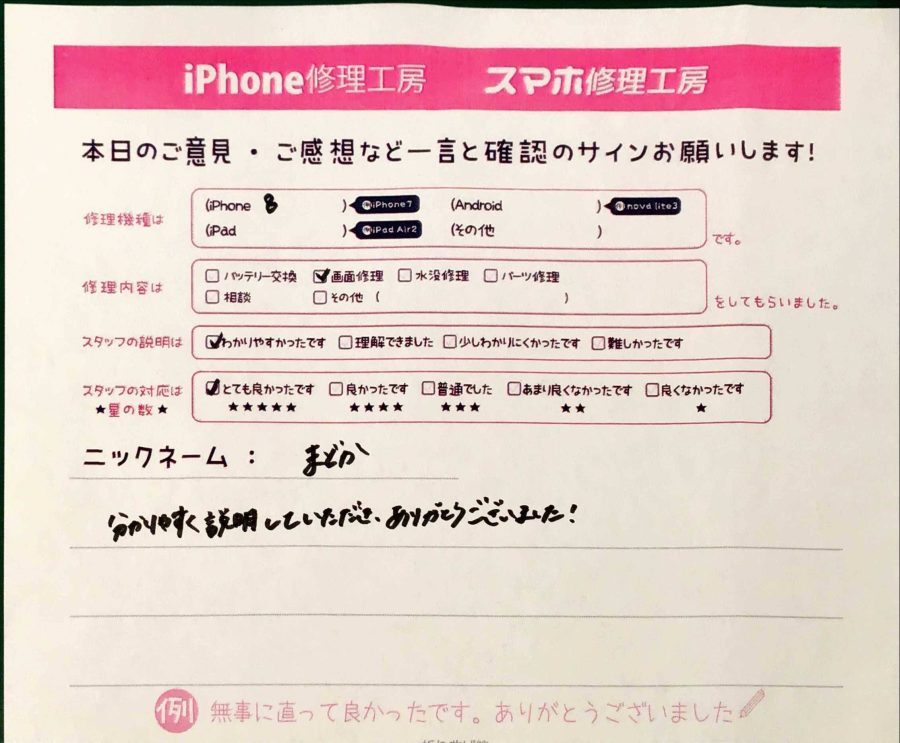 iPhone修理工房 スマホ修理工房
本日のご意見・ご感想など一言と確認のサインお願いします!
修理機種は (iPhone 8 ) 例iPhone7 (Android ) 例nova lite3
(iPad ) 例iPad Air2 (その他 ) です。
修理内容は □バッテリー交換 ☑画面修理 □水没修理 □パーツ修理
□相談 □その他 ( ) をしてもらいました。
スタッフの説明は ☑わかりやすかったです □理解できました □少しわかりにくかったです □難しかったです
スタッフの対応は ☑とても良かったです □良かったです □普通でした □あまり良くなかったです □良くなかったです
★星の数★ ★★★★★ ★★★★ ★★★ ★★ ★
ニックネーム: まどか
分かりやすく説明していただき、ありがとうございました!
例 無事に直って良かったです。ありがとうございました